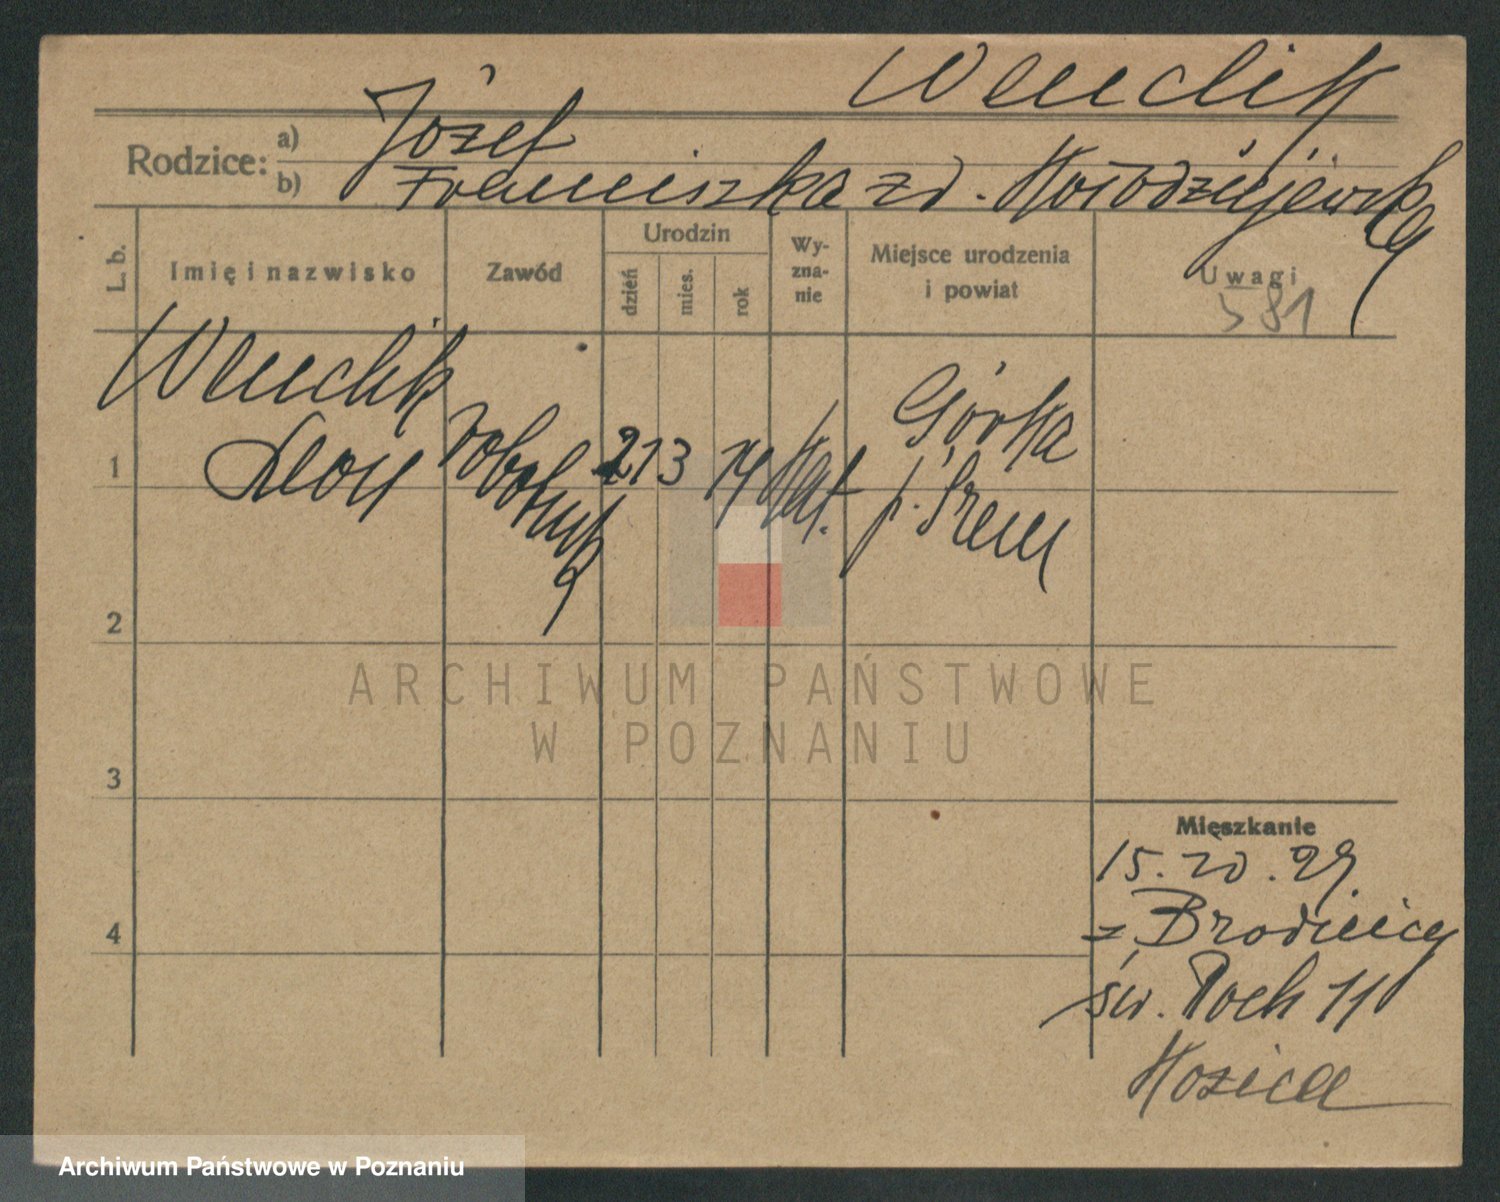 Wenclik
Rodzice:
a) Józef
b) Franciszka zd. Kołodziejewska
L. b.
Imię i nazwisko
Zawód
Urodzin
dzień
mies.
rok
Wy-
zna-
nie
Miejsce urodzenia
i powiat
Uwagi
581
1
Wenclik
Leon
robotnik
21 3 14
Kat.
Górka
p. Śrem
2
3
4
Mieszkanie
15. 10. 29.
z Brodnicy
św. Roch 11
ARCHIWUM PAŃSTWOWE
W POZNANIU
Archiwum Państwowe w Poznaniu